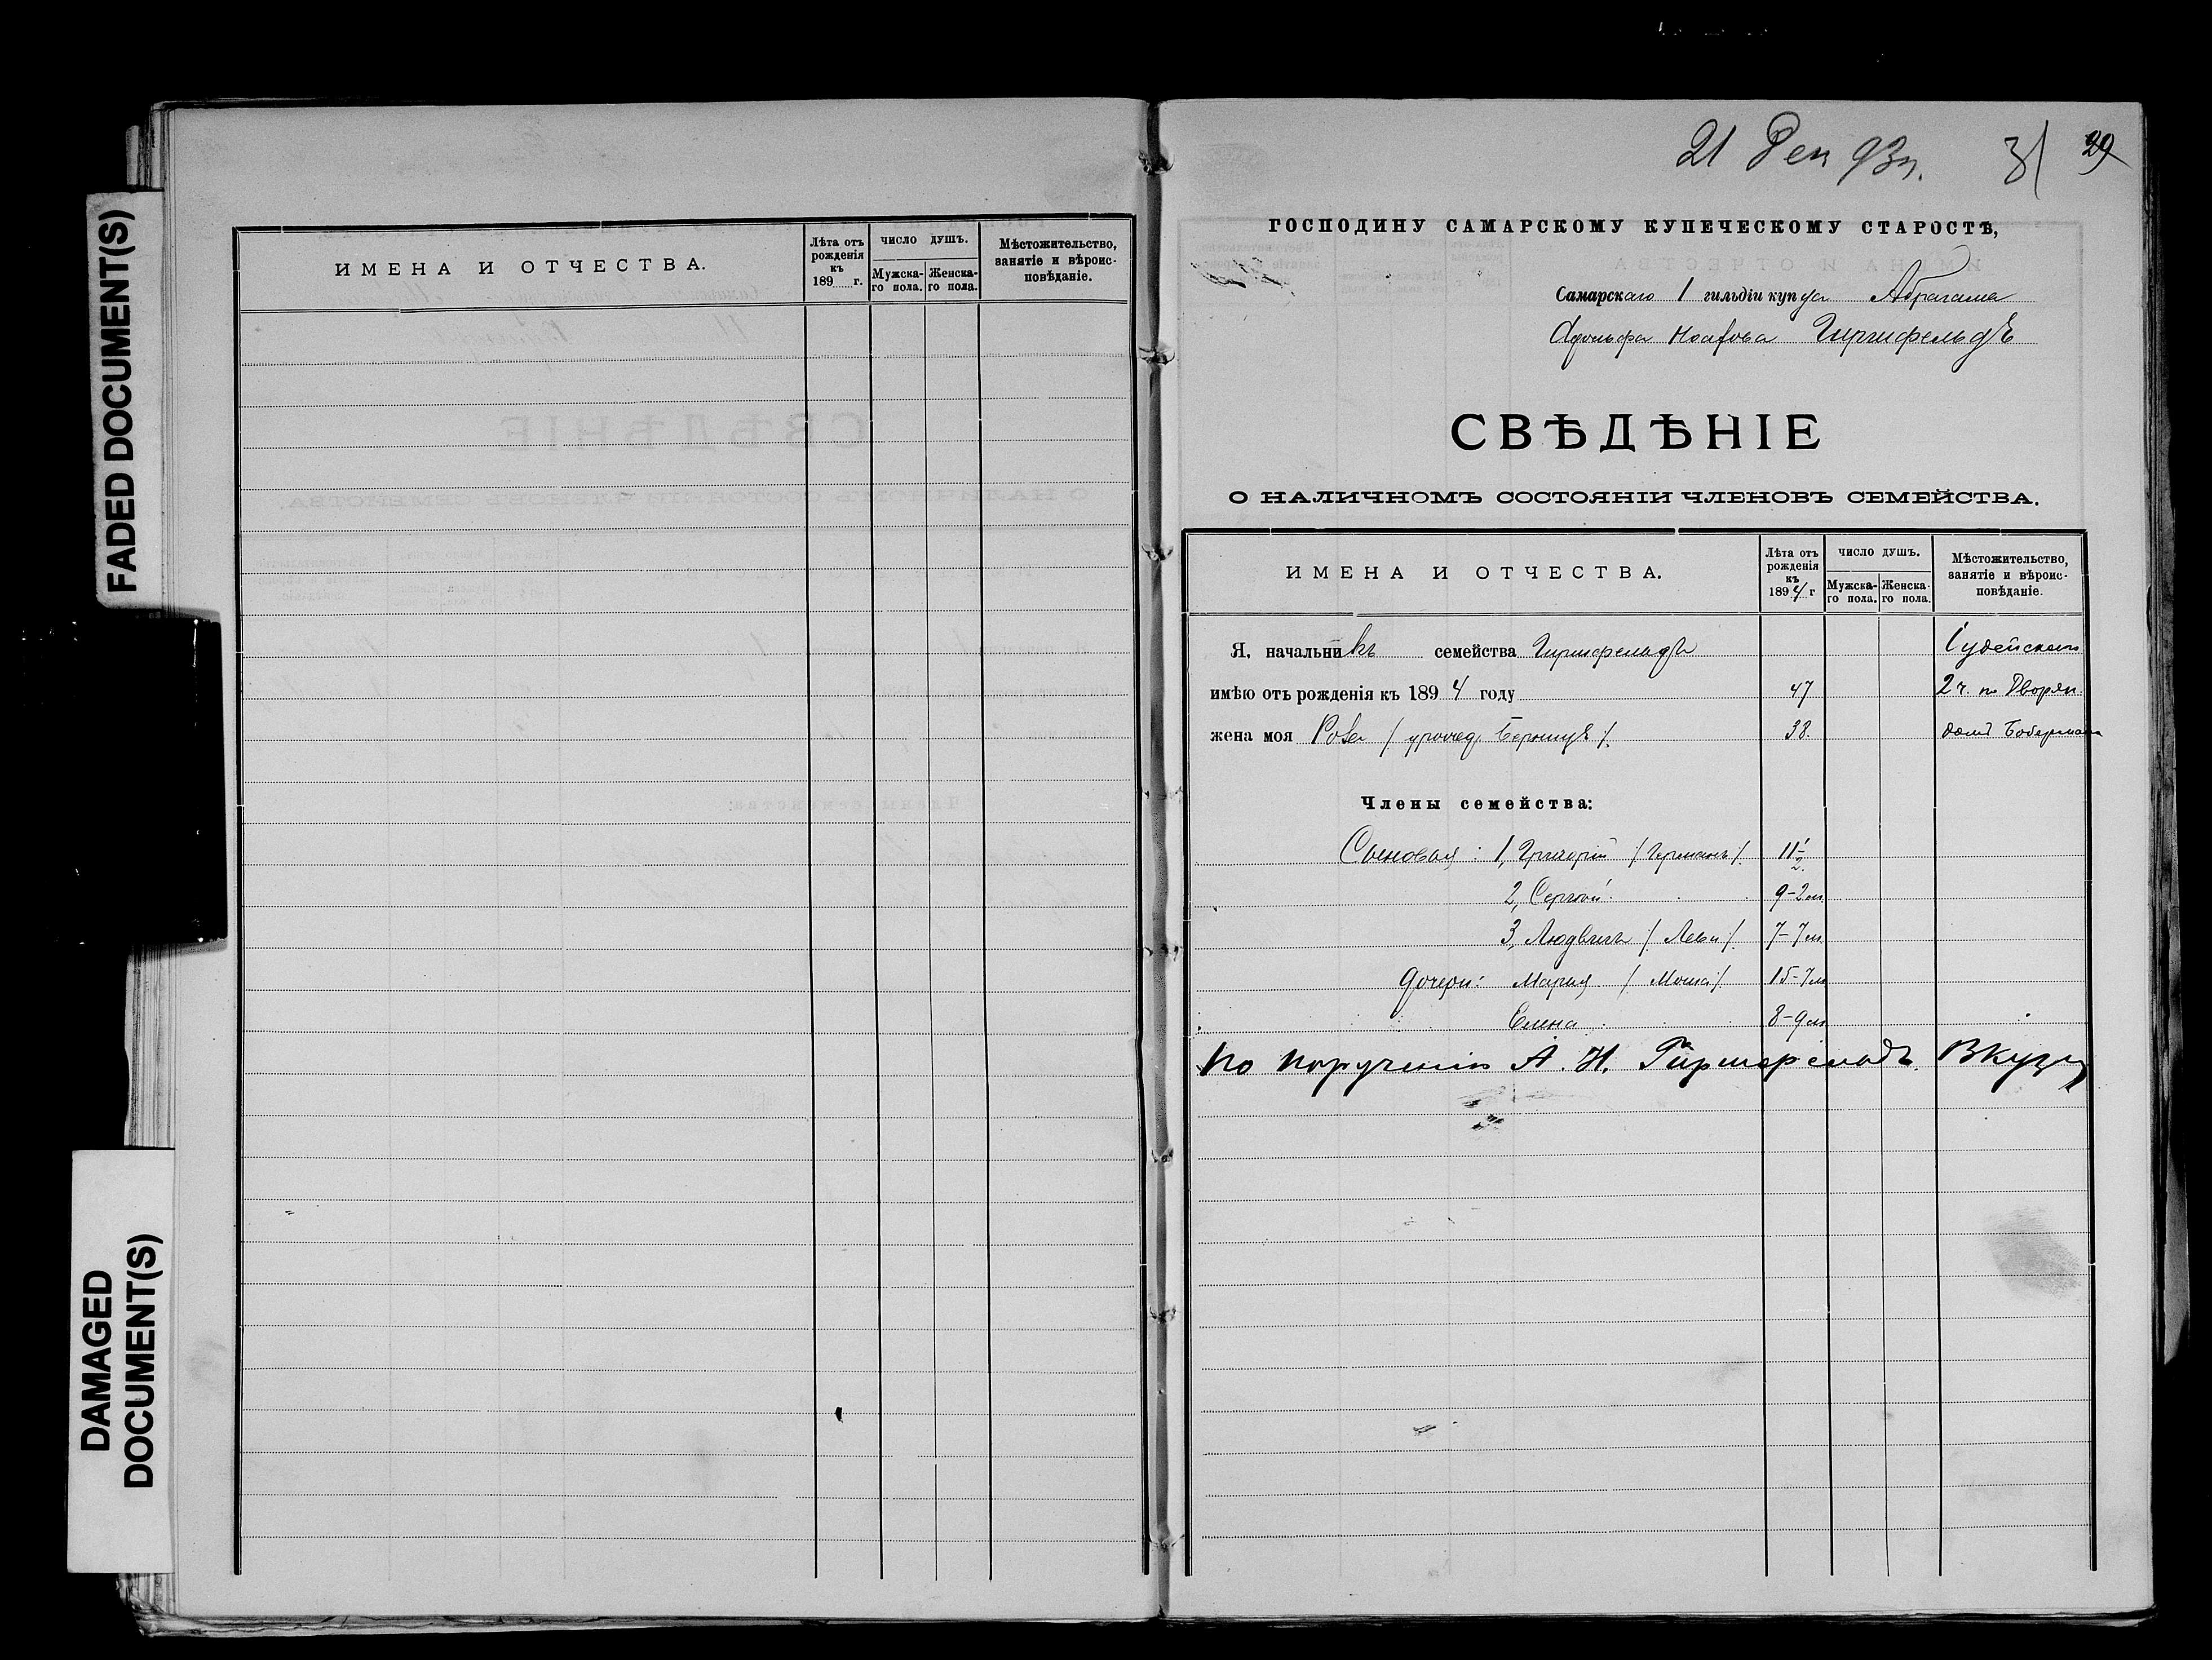 FADED DOCUMENT(S)
DAMAGED
DOCUMENT(S)
ИМЕНА И ОТЧЕСТВА.
Лѣта отъ рожденія къ 189 г.
ЧИСЛО ДУШЪ.
Мужска-го пола.
Женска-го пола.
Мѣстожительство, занятіе и вѣроис-повѣданіе.
21 Дек 93 г.
31 29
ГОСПОДИНУ САМАРСКОМУ КУПЕЧЕСКОМУ СТАРОСТѢ,
Самарскаго 1 гильдіи купца Абрагама
Адольфа Гиршфельдъ
СВѢДѢНІЕ
О НАЛИЧНОМЪ СОСТОЯНІИ ЧЛЕНОВЪ СЕМЕЙСТВА.
ИМЕНА И ОТЧЕСТВА.
Лѣта отъ рожденія къ 1894 г
ЧИСЛО ДУШЪ.
Мужска-го пола.
Женска-го пола.
Мѣстожительство, занятіе и вѣроис-повѣданіе.
Я, начальникъ семейства Гиршфельдъ Іудейскаго
имѣю отъ рожденія къ 1894 году 47 2 ч. по Дворян
жена моя Роза 38. домъ Бобермана
Члены семейства:
Сыновья: 1, Григорій /Германъ/. 11 1/2.
2, Сергѣй 9-2 м
3, Людвигъ /Леви/. 7-7 м
Дочери: Марія 15-7 м
Елена 8-9 м
По порученію А. Н. Гиршфельдъ